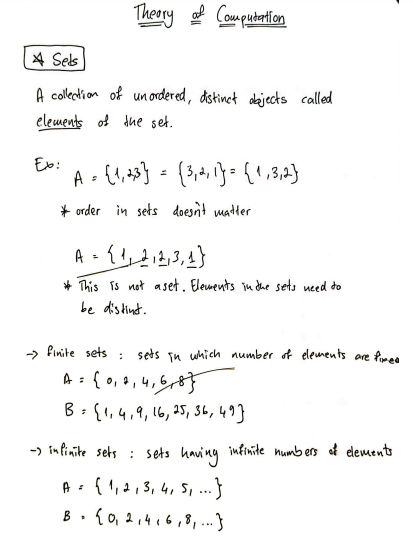 Theory of Computation
* Sets
A collection of unordered, distinct objects called
elements of the set.
Ex: A = {1,2,3} = {3,2,1} = {1,3,2}
* order in sets doesn't matter
A = {1, 2, 2, 3, 1}
* This is not a set. Elements in the sets need to
be distinct.
→ finite sets : sets in which number of elements are fixed
A = {0, 2, 4, 6, 8}
B = {1, 4, 9, 16, 25, 36, 49}
→ infinite sets : sets having infinite numbers of elements
A = {1, 2, 3, 4, 5, ...}
B = {0, 2, 4, 6, 8, ...}